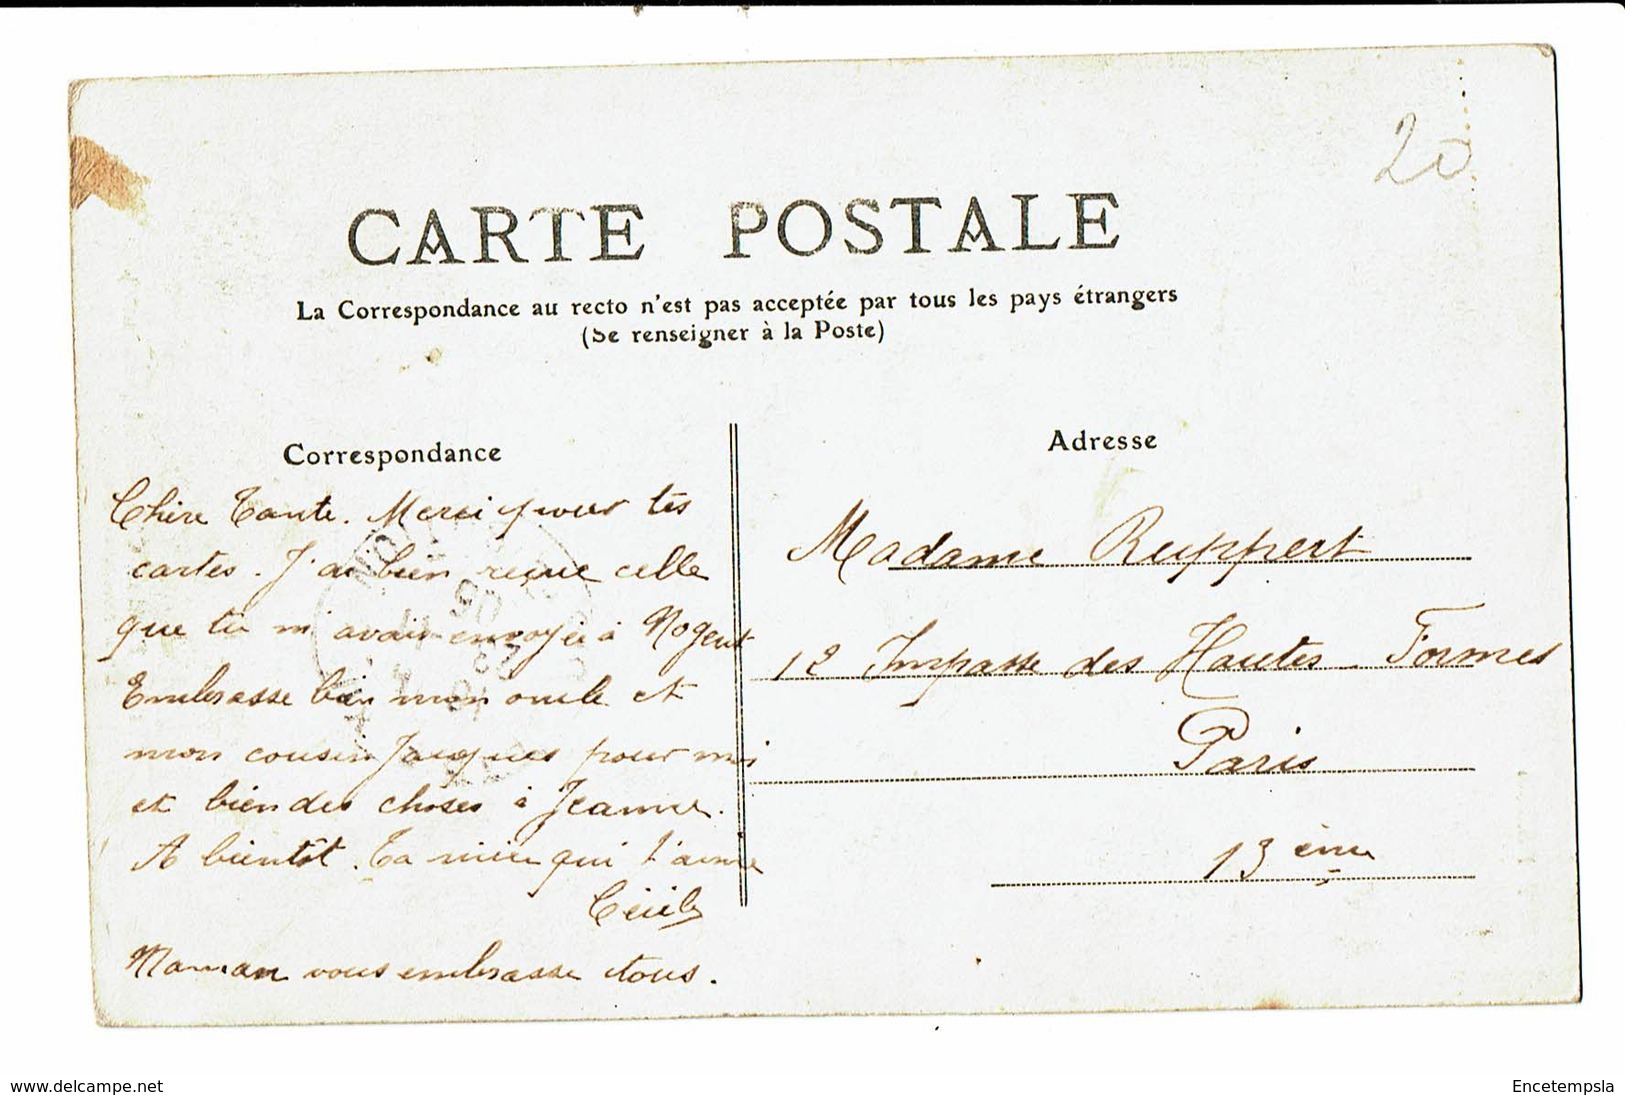 20
CARTE POSTALE
La Correspondance au recto n'est pas acceptée par tous les pays étrangers
(Se renseigner à la Poste)
Correspondance
Chère Tante. Merci pour tes
cartes. J'ai bien reçue celle
que tu m'avais envoyée à Nogent
Embrasse bien mon oncle et
mon cousin Jacques pour moi
et bien des choses à Jeanne.
A bientôt. Ta nièce qui t'aime
Cécile
Maman vous embrasse tous.
Adresse
Madame Ruppert
12 Impasse des Hautes Formes
Paris
13 ème
www.delcampe.net
Encetempsla